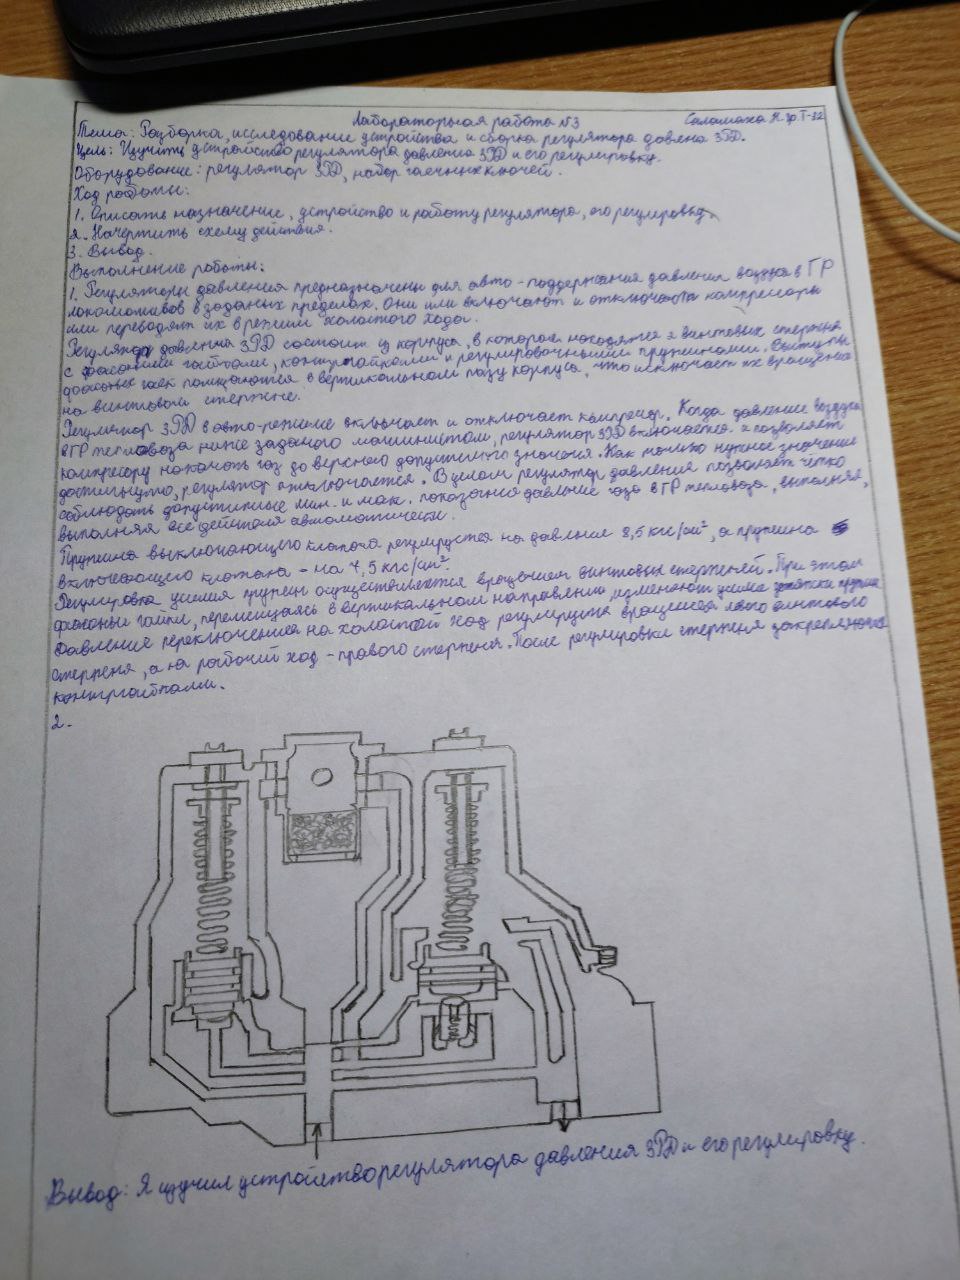 Лабораторная работа №3 Саламаха Я. гр. Т-32
Тема: Разборка, исследование устройства и сборка регулятора давлена 3РД.
Цель: Изучить устройство регулятора давления 3РД и его регулировку.
Оборудование: регулятор 3РД, набор гаечных ключей.
Ход работы:
1. Описать назначение, устройство и работу регулятора, его регулировку.
2. Начертить схему действия.
3. Вывод.
Выполнение работы:
1. Регуляторы давления предназначены для авто-поддержания давления воздуха в ГР
локомотивов в заданых пределах. Они или включают и отключают компрессоры
или переводят их в режим холостого хода.
Регулятор давления 3РД состоит из корпуса, в котором находятся 2 винтовых стержня
с фасонными гайками, контргайками и регулировочными пружинами. Выступы
фасонных гаек помещаются в вертикальном пазу корпуса, что исключает их вращение
на винтовом стержне.
Регулятор 3РД в авто-режиме включает и отключает компресор. Когда давление воздуха
в ГР тепловоза ниже заданого машинистом, регулятор 3РД включается и позволяет
компресору накачать газ до верхнего допустимого значения. Как только нужное значение
достигнуто, регулятор отключается. В целом регулятор давления позволяет чётко
соблюдать допустимые мин. и мак. показания давление газа в ГР тепловоза, выполняя,
выполняя все действия автоматически.
Пружина выключающего клапана регулируется на давление 8,5 кгс/см², а пружина
включающего клапана - на 7,5 кгс/см².
Регулировка усилия пружин осуществляется вращением винтовых стержней. При этом
фасоные гайки, перемещаясь в вертикальном направлении, изменяют усилия затяжки пружин
Давление переключения на холостой ход регулируется вращением левого винтового
стержня, а на рабочий ход - правого стержня. После регулировки стержня закрепляются
контргайками.
2.
Вывод: Я изучил устройство регулятора давления 3РД и его регулировку.